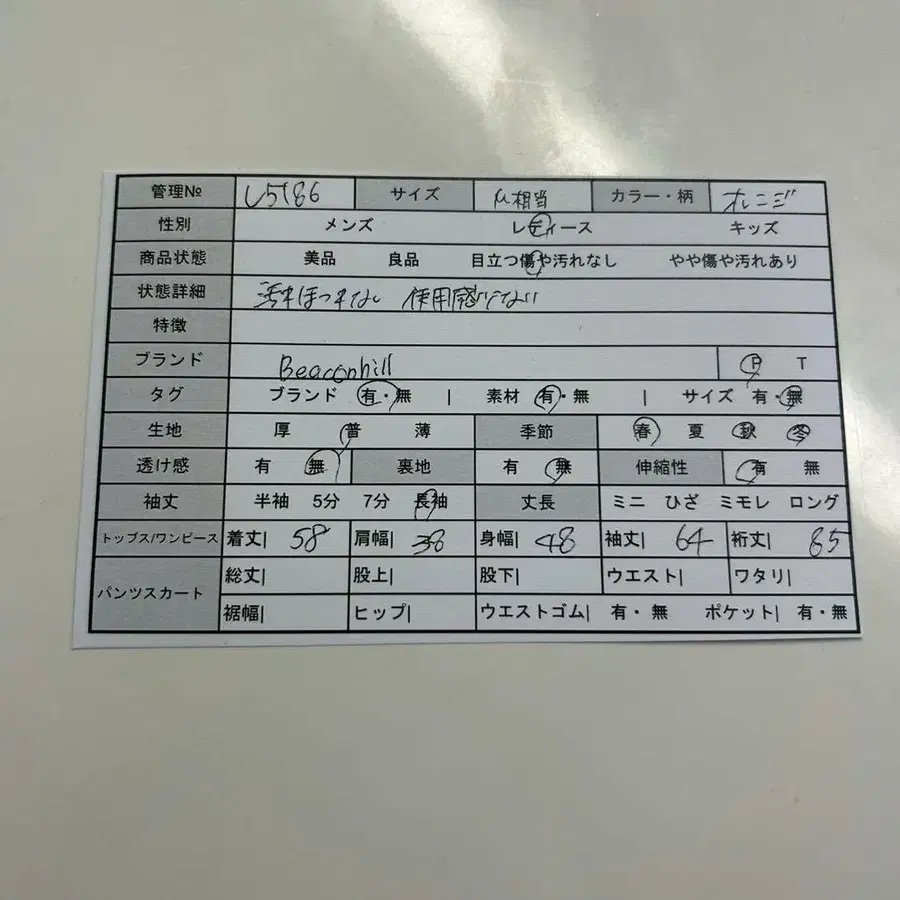 管理№ L5186 サイズ M相当 カラー・柄 オレンジ
性別 メンズ レディース キッズ
商品状態 美品 良品 目立つ傷や汚れなし やや傷や汚れあり
状態詳細 汚れほつれなし 使用感少ない
特徴
ブランド Beaconhill P T
タグ ブランド 有・無 | 素材 有・無 | サイズ 有・無
生地 厚 普 薄 季節 春 夏 秋 冬
透け感 有 無 裏地 有 無 伸縮性 有 無
袖丈 半袖 5分 7分 長袖 丈長 ミニ ひざ ミモレ ロング
トップス/ワンピース 着丈| 58 肩幅| 38 身幅| 48 袖丈| 64 裄丈| 85
パンツスカート 総丈| 股上| 股下| ウエスト| ワタリ|
裾幅| ヒップ| ウエストゴム| 有・無 ポケット| 有・無